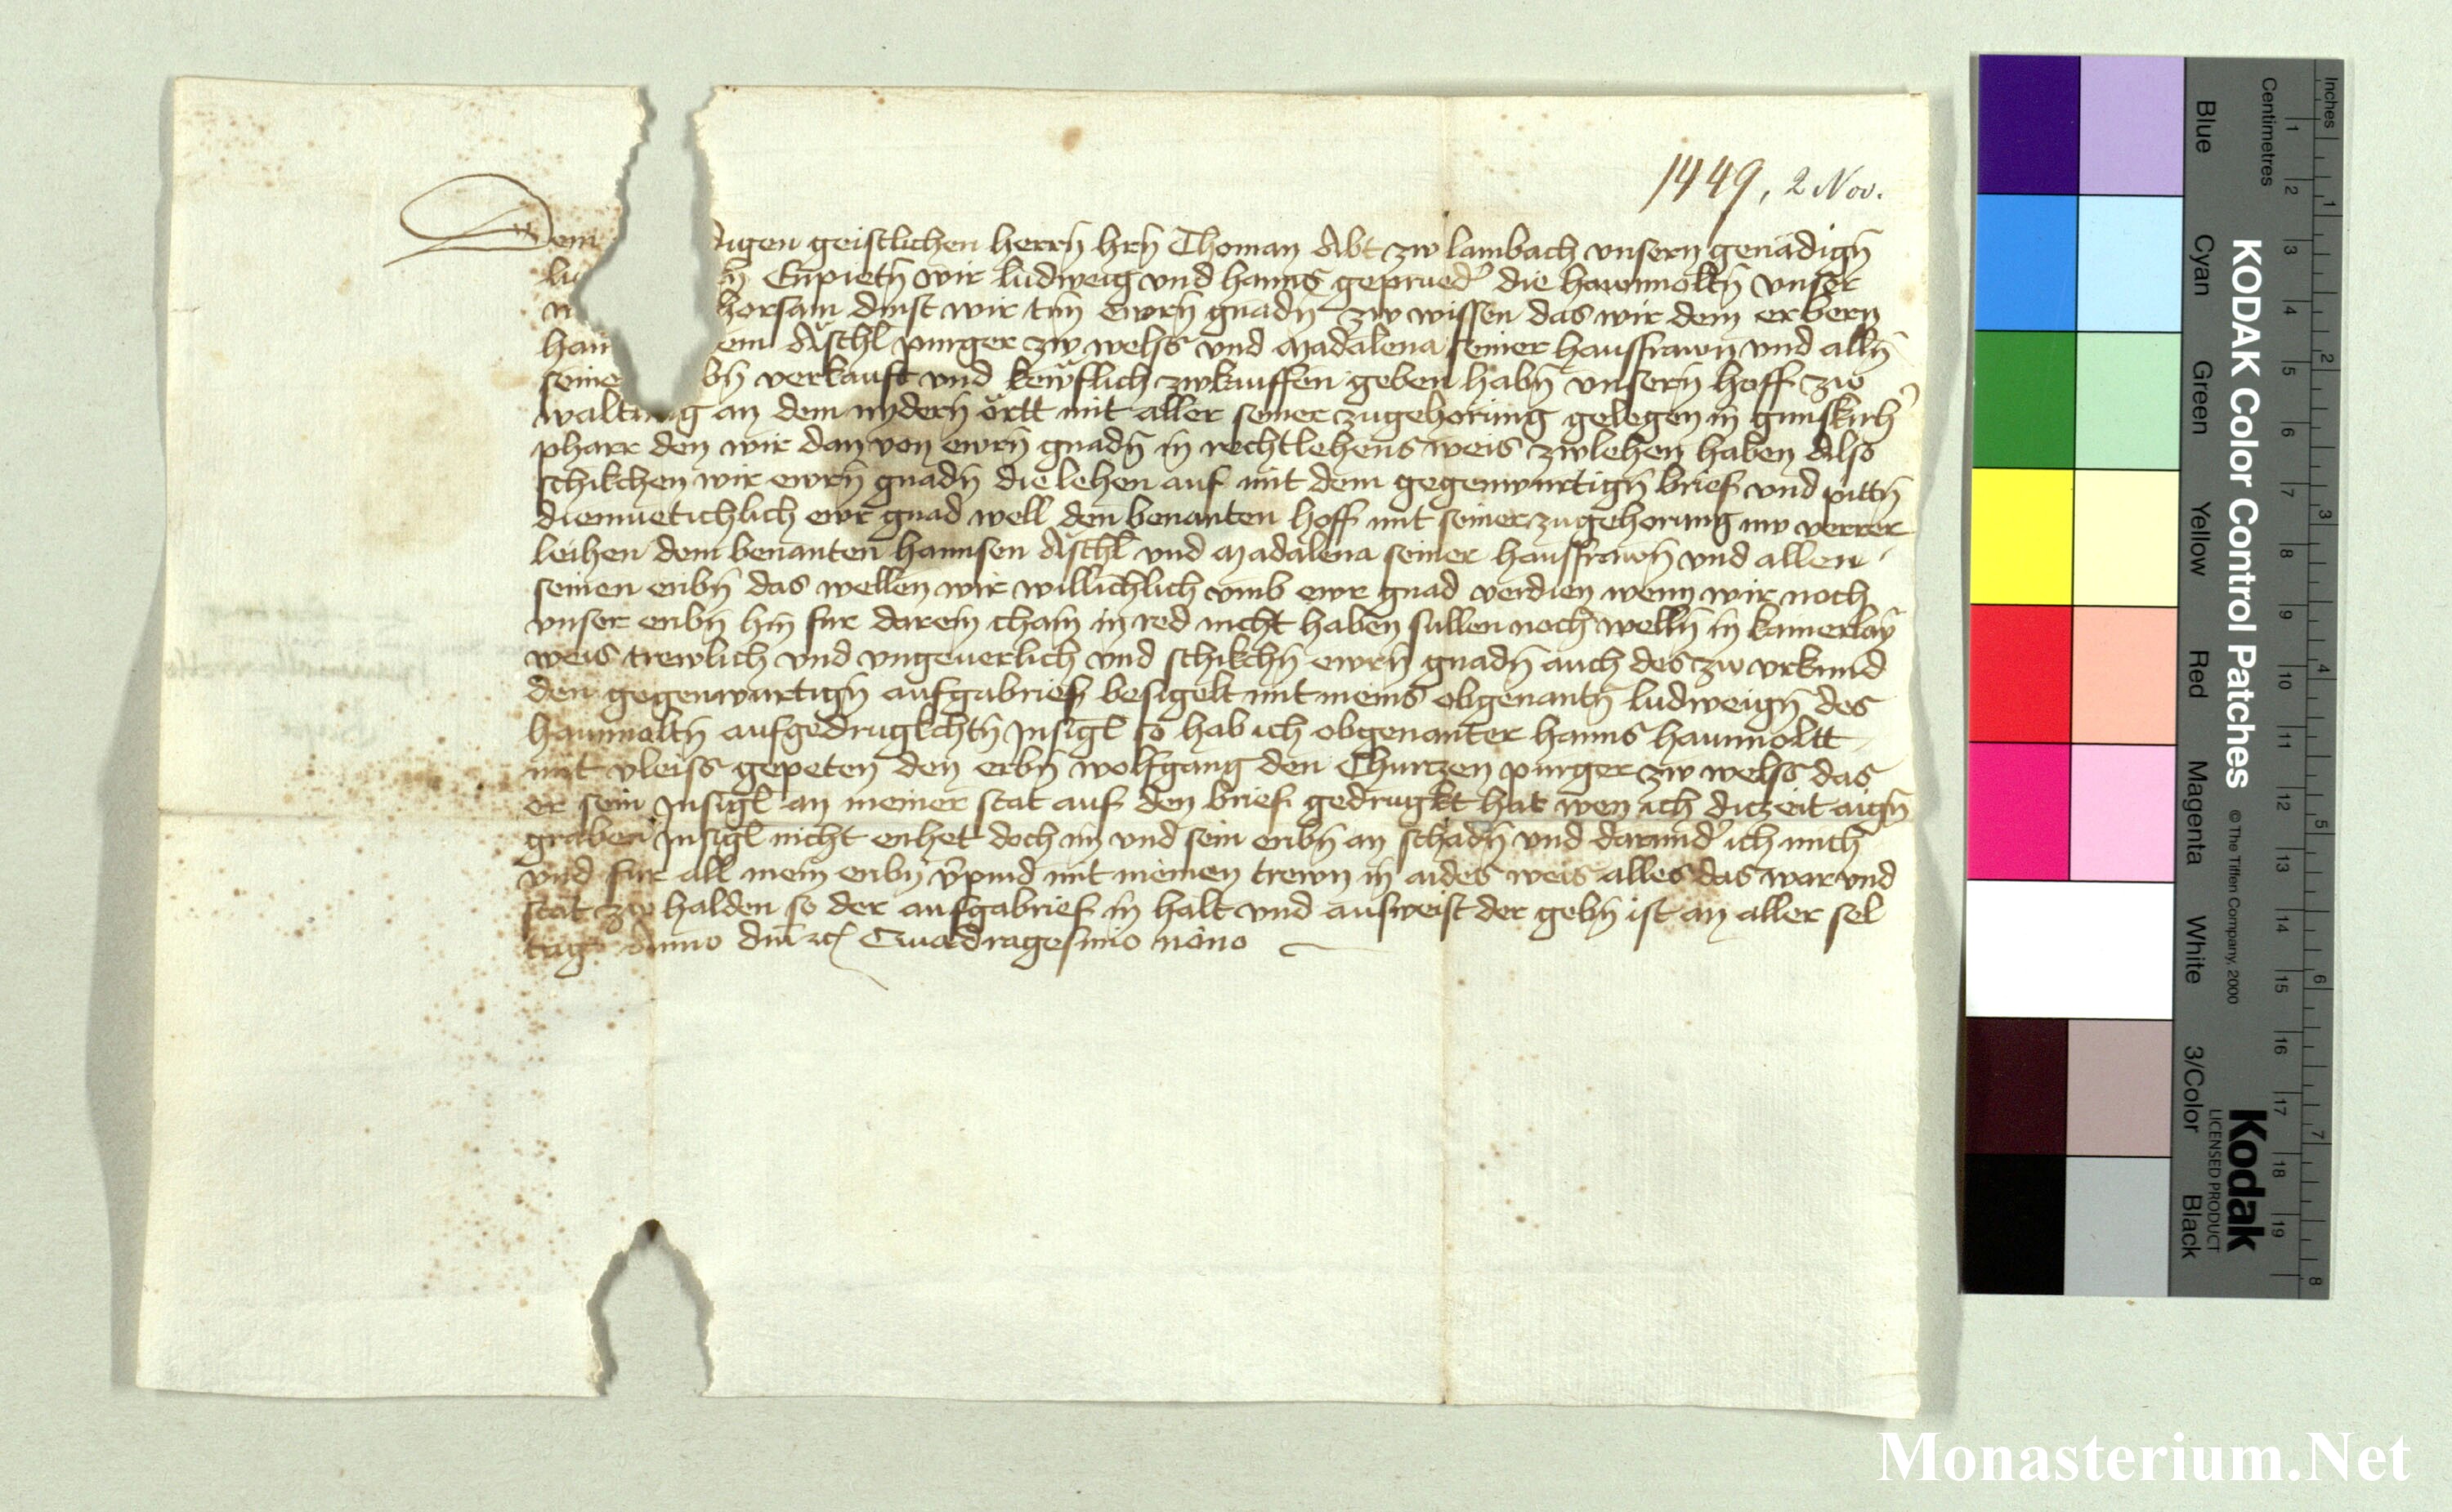 1449, 2 Nov.
Dem digen geistlichen herrn hrn Thoman Abt zw lambach vnsern genadign
Enpietn wir ludweig vnd hanns geprued' die hawnmoltn vnser
horsam dinst wir tun ewrn gnadn zw wissen das wir dem erbern
han em Aschl purger zw wels vnd Madalena seiner hausfrawn vnd alln
seine bn verkauft vnd kewflich zwkauffen geben habn vnsern hoff zw
walting an dem nydern ortt mit aller seiner zugehorung gelegen in gunskirh'
pharr den wir dan von ewrn gnadn in rechtlehens weis zwlehen haben Also
schikchen wir ewrn gnadn die lehen auf mit dem gegenwurtign brief vnd pittn
diemuetichlich ewr gnad well den benanten hoff mit seiner zugehorung nw verrer
leihen dem benanten hannsen Aschl vnd Madalena seiner hausfrawn vnd allen
seinen erbn das wellen wir willichlich vmb ewr gnad verdien wenn wir noch
vnser erbn hin fur darein chain in red nicht haben sullen noch welln in kainerlay
weis trewlich vnd vngeuerlich vnd schikchn ewrn gnadn auch des zw vrkund
den gegenwurtign aufgabrief besigelt mit meins obgenantn ludweign des
haunmoltn aufgedrugkchtn Insigl so hab ich obgenanter hanns haunmoltt
mit vleiss gepeten den erbn wolfgang den Churczen purger zw wels das
er sein Insigl an meiner stat auf den brief gedrugkt hat wen ich diczeit aign
graben Insigl nicht enhet doch im vnd sein erbn an schadn vnd darund' ich mich
vnd fur all mein erbn v'pind mit meinen trewn in aides weis alles das war vnd
stat zw halden so der aufgabrief in halt vnd ausweist der gebn ist an aller sel
tag Anno dni rc Quadragesimo nono
KODAK Color Control Patches © The Tiffen Company, 2000
Kodak
LICENSED PRODUCT
Blue Cyan Green Yellow Red Magenta White 3/Color Black
Inches 1 2 3 4 5 6 7 8
Centimetres 1 2 3 4 5 6 7 8 9 10 11 12 13 14 15 16 17 18 19
Monasterium.Net